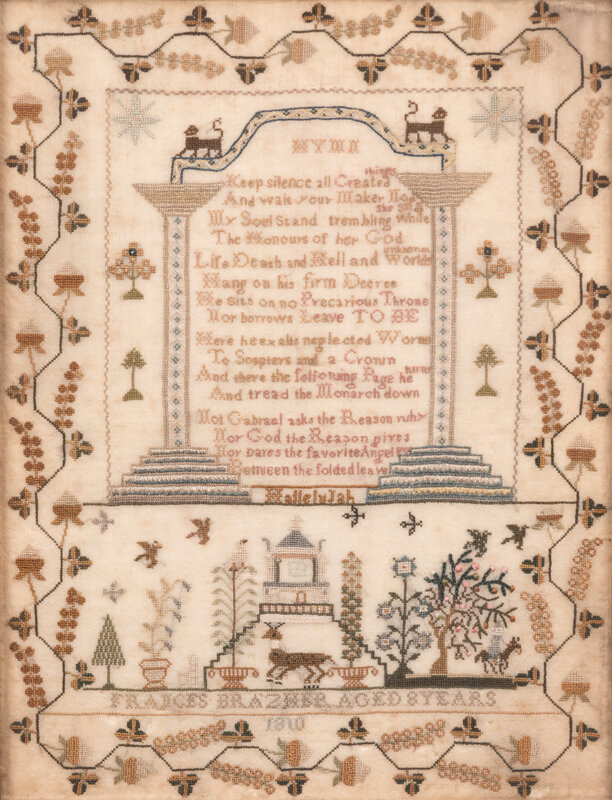 HYMN
Keep silence all Created things
And wait your Maker Nod
My Soul Stand trembling While She Sings
The Honours of her God
Life Death and Hell and Worlds unknown
Hang on his firm Decree
He Sits on no Precarious Throne
Nor borrows Leave TO BE
Here he exalts neglected Worms
To Scepters and a Crown
And there the following Page he turns
And tread the Monarch down
Not Gabrael asks the Reason why
Nor God the Reason gives
Nor Dares the favorite Angel
Between the folded leaves
Hallelujah
FRANCES AGED 8 YEARS
1810